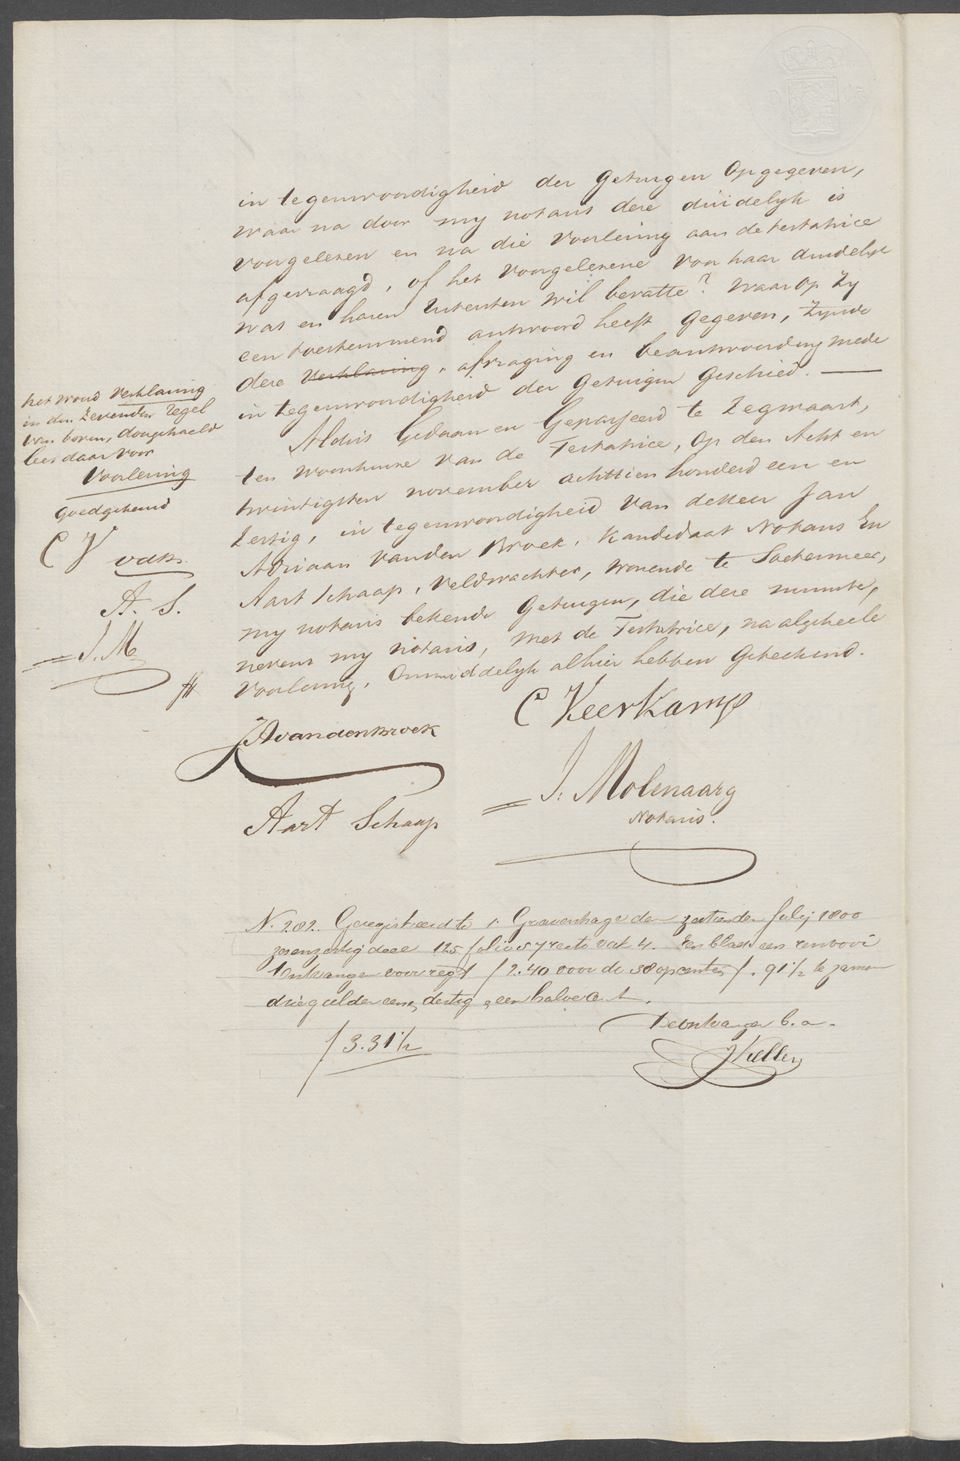 in tegenwoordigheid der getuigen opgegeven,
waar na door my notaris deze duidelyk is
voorgelezen en na die voorlezing aan de testatrice
afgevraagd, of het voorgelezene voor haar duidelyk
was en haren uitersten wil bevatte? waarop zy
een toestemmend antwoord heeft gegeven, zynde
deze verklaring, afvraging en beantwoording mede
in tegenwoordigheid der getuigen geschied. —
het woord verklaring
in den zevenden regel
van boven, doorgehaald
lees daar voor
voorlezing
goedgekeurd
C V vdB.
A. S.
J. M
Aldus gedaan en gepasseerd te Zegwaart,
ten woonhuize van de Testatrice, op den acht en
twintigsten november achttien honderd een en
zestig, in tegenwoordigheid van de Heer Jan
Adriaan van den Broek, kandidaat Notaris en
Aart Schaap, veldwachter, wonende te Soetermeer,
my notaris bekende getuigen, die deze minute,
nevens my notaris, met de Testatrice, na algeheele
voorlezing, onmiddelyk alhier hebben geteekend.
C Keerkamp
JAvandenBroek
J. Molenaar
Notaris.
Aart Schaap
N. 282. Geregistreerd te 's Gravenhage den zestienden July 1800
zesenzestig deel 125 folio 57 recto vak 4. Een blad een renvooi
Ontvangen voor regt f 2.40 voor de 38 opcenten f. 91½ te zamen
drie gulden een dertig een halve cent.
f 3.31½
De Ontvanger b. a.